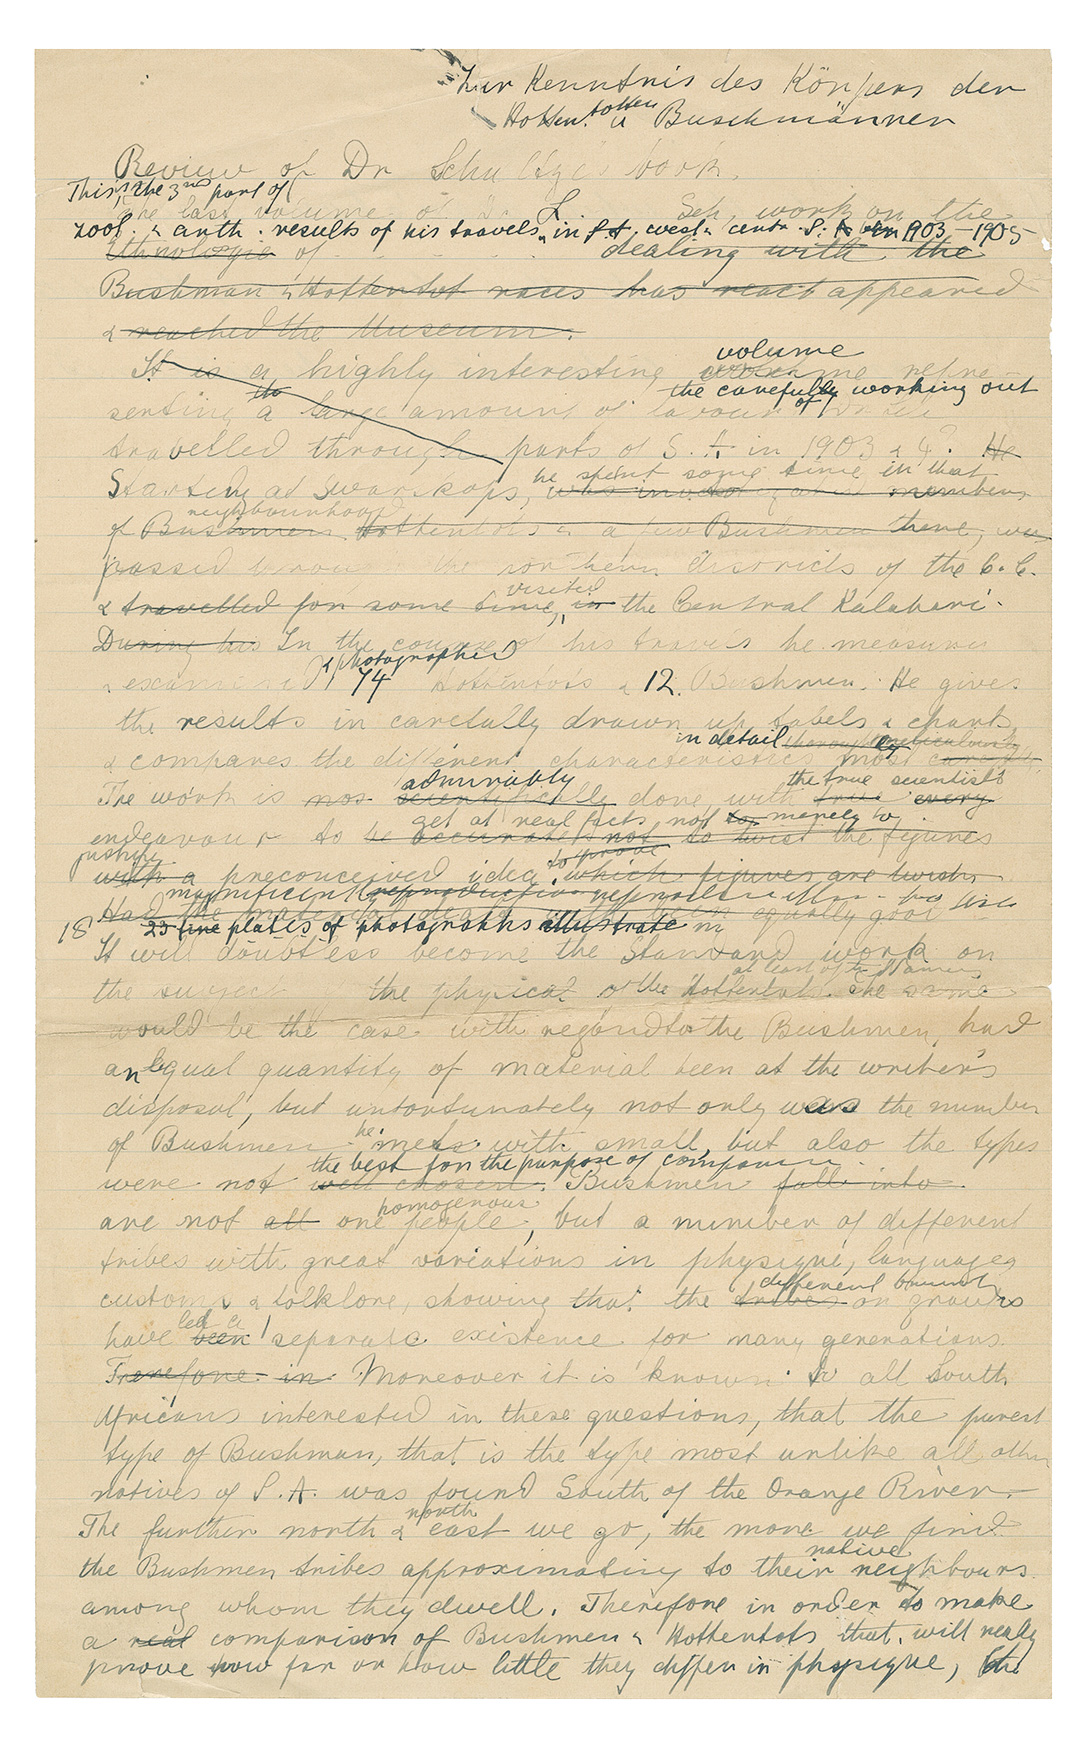 Zur Kenntnis des Körpers der
Hottentotten u Buschmänner
Review of Dr Schultze's book.
This is the 3rd part of
The last volume of Dr L. Sch. work on the
zool. & anth. results of his travels in S. A. west & centr. S. A. in 1903–1905
Ethnologie of dealing with the
Bushman & Hottentot races has appeared
& reached the Museum.
volume
It is a highly interesting repre-
the carefully working out
senting a large amount of labour
travelled through parts of S. A. in 1903 & 4? He
he spent some time in that
Starting at Swarkops, members
neighbourhood
of Bushmen Hottentots & a few Bushmen there,
passed through the northern districts of the C. C.
visited
& travelled for some time, in the Central Kalahari.
During his In the course of his travels he measured
& photographed
& examined 74 Hottentots & 12 Bushmen. He gives
the results in carefully drawn up tabels & charts
in detail
& compares the different characteristics most
admirably the true scientist's
The work is scientifically done, with true every
get at real facts not to merely to
endeavour to be accurate not to twist the figures
justify to prove
with a preconceived idea. which figures are
magnificent reproduction
Had the equally good
18 23 fine plates of photographs illustrate
It will doubtless become the Standard work on
at least of the Namas
the subject the physical of the Hottentots. The same
would be the case with regard to the Bushmen, had
an equal quantity of material been at the writer's
disposal, but unfortunately not only was the number
he
of Bushmen meets with small, but also the types
the best for the purpose of comparison
were not well chosen. Bushmen fall into
homogenous
are not all one people, but a number of different
tribes with great variations in physique, languages
different branches
customs & folklore, showing that the tribes or groups
led a
have been separate existence for many generations.
Therefore in Moreover it is known to all South
Africans interested in these questions, that the purest
type of Bushman, that is the type most unlike all other
natives of S. A. was found South of the Orange River.
north
The further north & east we go, the more we find
native
the Bushmen tribes approximating to their neighbours
among whom they dwell. Therefore in order to make
a real comparison of Bushmen & Hottentots that will really
prove how far or how little they differ in physique, the